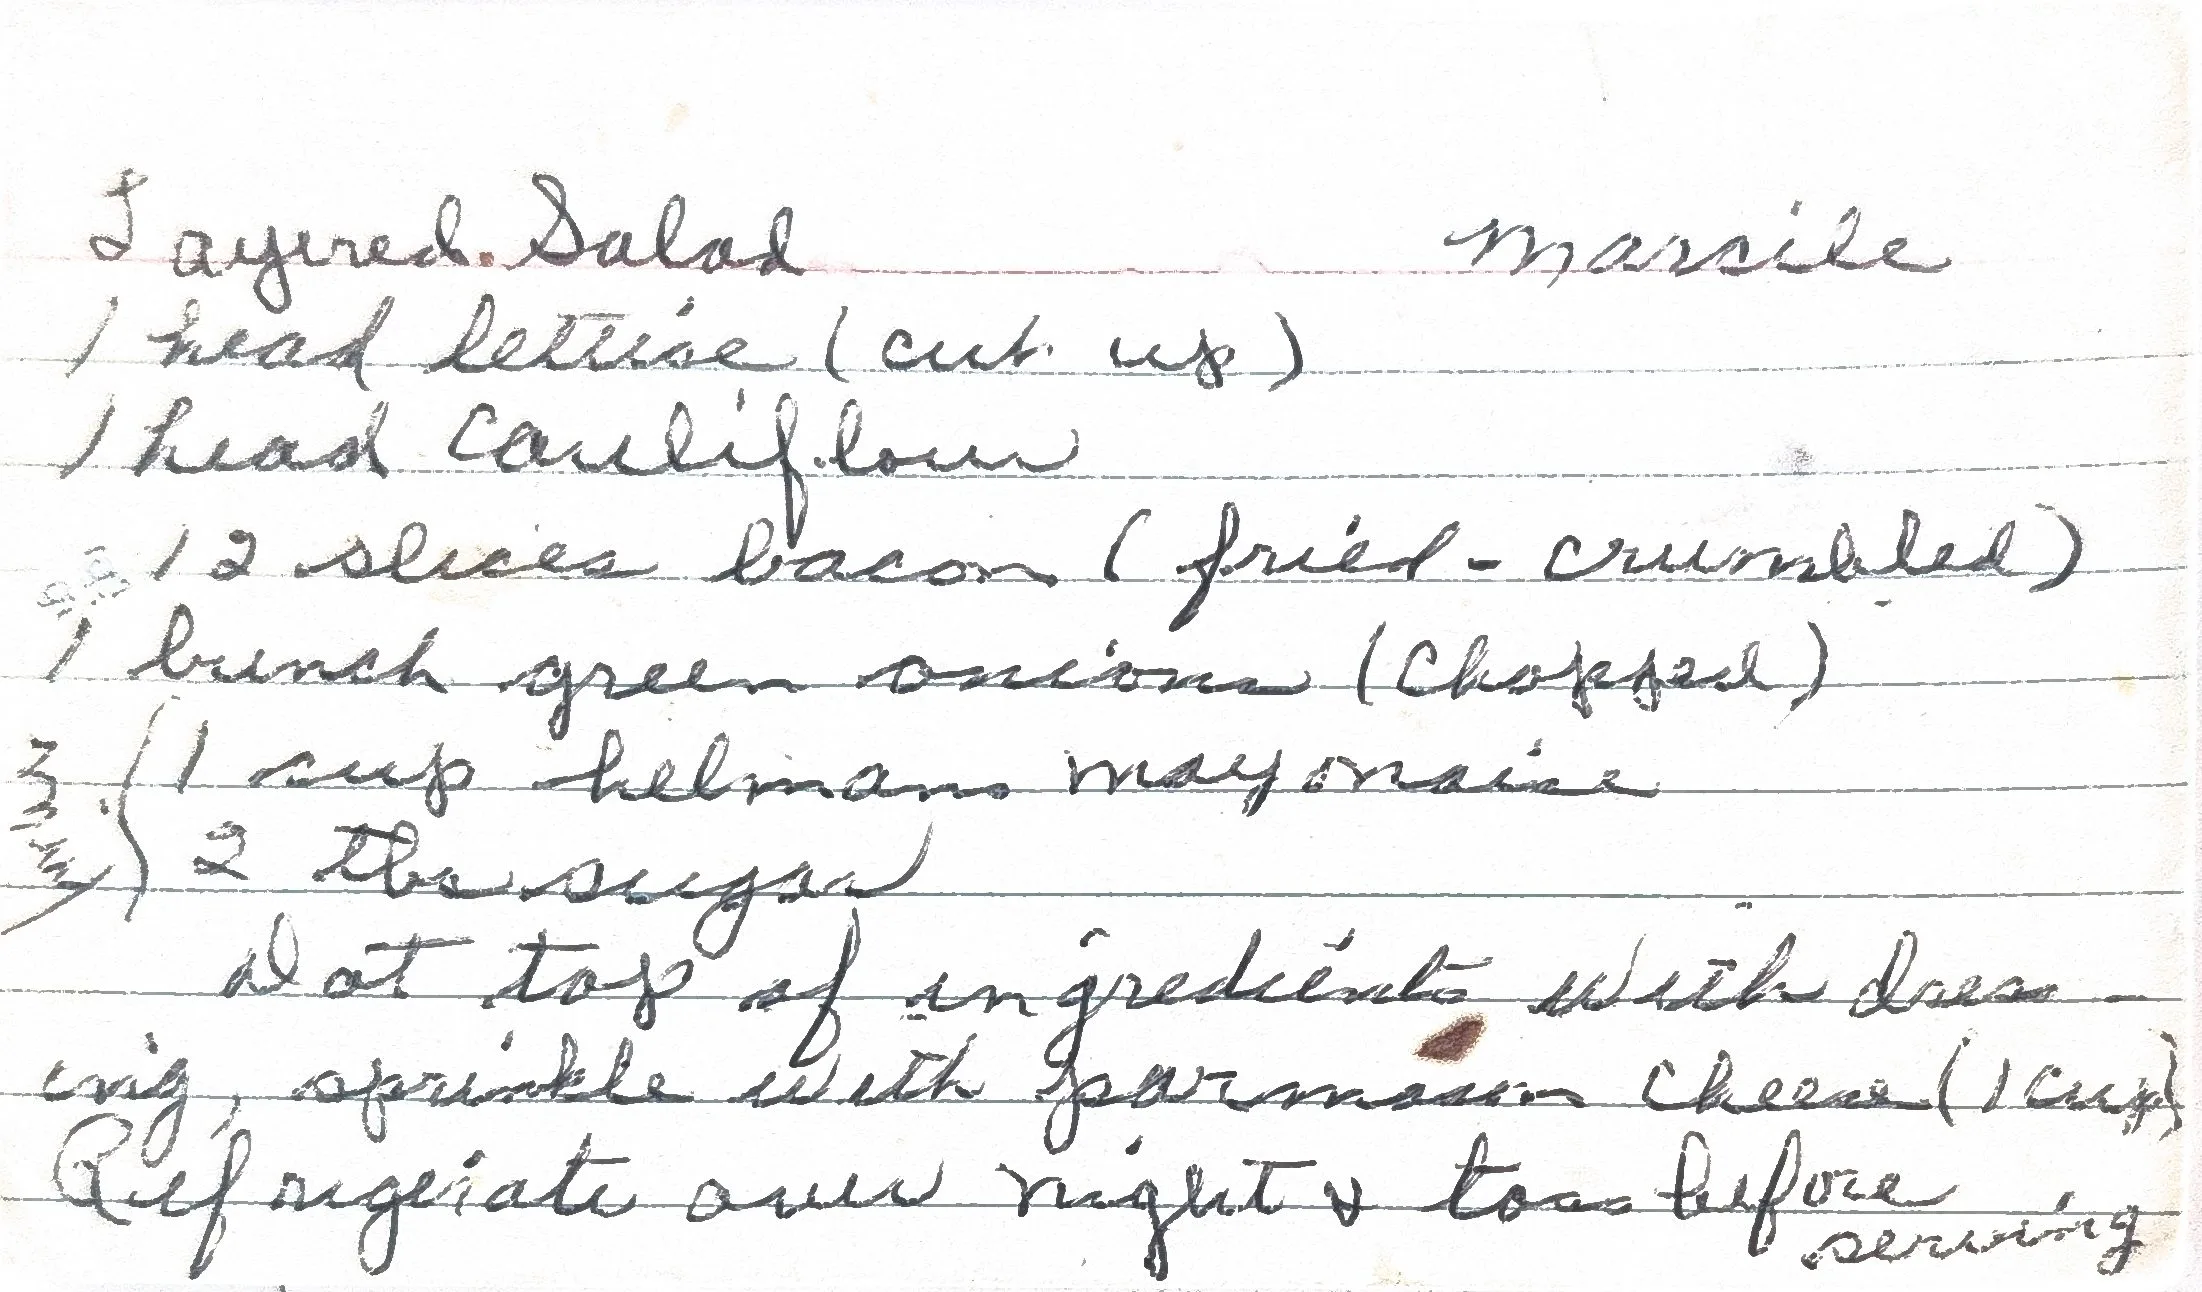 Layered Salad Marcile
1 head lettuce (cut up)
1 head Cauliflour
12 slices bacon (fried - crumbled)
1 bunch green onions (Chopped)
1 cup helmans mayonaise
2 tbs sugar
Dot top of ingredients with dress-
ing, sprinkle with parmesan cheese (1 cup)
Refrigerate over night & toss before
serving